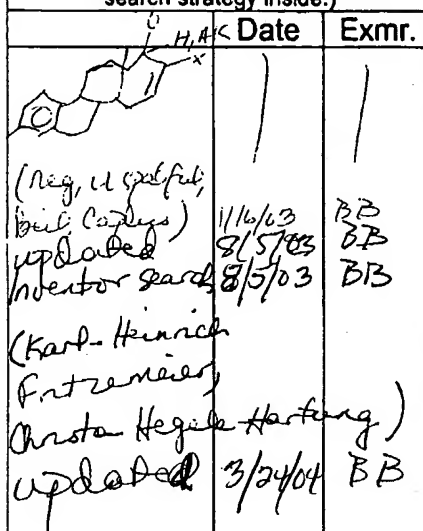 search strategy inside.)
Date Exmr.
O
H, A
X
(Reg, uspatful,
Beil, Caplus) 1/16/03 BB
updated 8/5/03 BB
Inventor search 8/5/03 BB
(Karl-Heinrich
Fritzemeier,
Christa Hegele-Hartung)
updated 3/24/04 BB